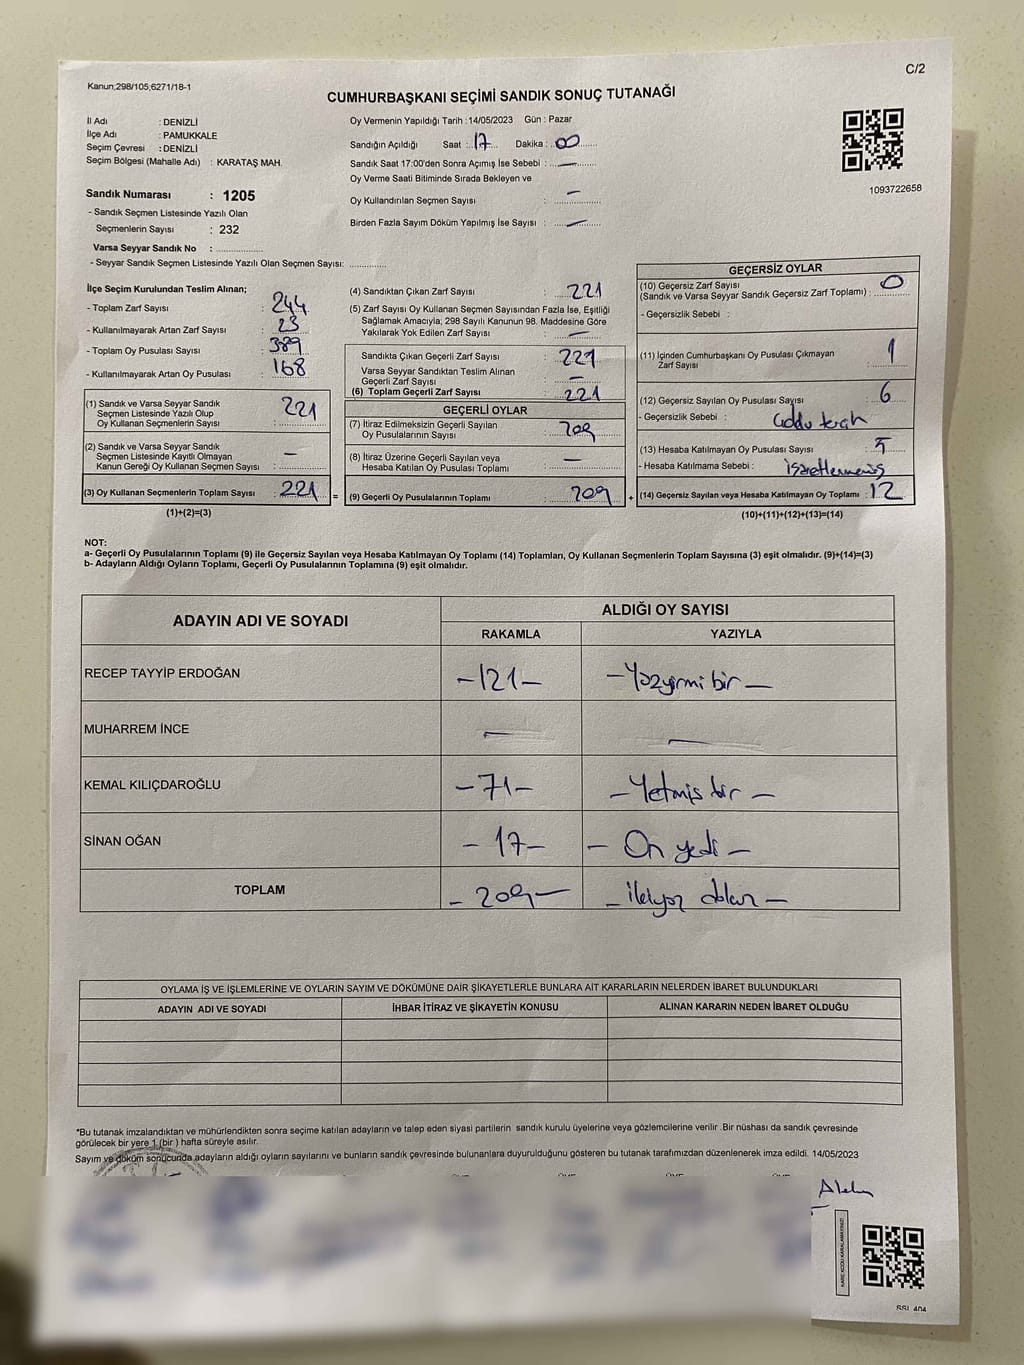 C/2
Kanun;298/105;6271/18-1
CUMHURBAŞKANI SEÇİMİ SANDIK SONUÇ TUTANAĞI
İl Adı : DENİZLİ
İlçe Adı : PAMUKKALE
Seçim Çevresi : DENİZLİ
Seçim Bölgesi (Mahalle Adı) : KARATAŞ MAH.
Sandık Numarası : 1205
- Sandık Seçmen Listesinde Yazılı Olan
Seçmenlerin Sayısı : 232
Varsa Seyyar Sandık No : ................
- Seyyar Sandık Seçmen Listesinde Yazılı Olan Seçmen Sayısı: ............
Oy Vermenin Yapıldığı Tarih :14/05/2023 Gün : Pazar
Sandığın Açıldığı Saat : 17 Dakika : 00
Sandık Saat 17:00'den Sonra Açımış İse Sebebi : —
Oy Verme Saati Bitiminde Sırada Bekleyen ve
Oy Kullandırılan Seçmen Sayısı : —
Birden Fazla Sayım Döküm Yapılmış İse Sayısı : —
1093722658
İlçe Seçim Kurulundan Teslim Alınan;
- Toplam Zarf Sayısı : 244
- Kullanılmayarak Artan Zarf Sayısı : 23
- Toplam Oy Pusulası Sayısı : 389
- Kullanılmayarak Artan Oy Pusulası : 168
(1) Sandık ve Varsa Seyyar Sandık
Seçmen Listesinde Yazılı Olup
Oy Kullanan Seçmenlerin Sayısı : 221
(2) Sandık ve Varsa Seyyar Sandık
Seçmen Listesinde Kayıtlı Olmayan
Kanun Gereği Oy Kullanan Seçmen Sayısı : —
(3) Oy Kullanan Seçmenlerin Toplam Sayısı : 221 =
(1)+(2)=(3)
(4) Sandıktan Çıkan Zarf Sayısı : 221
(5) Zarf Sayısı Oy Kullanan Seçmen Sayısından Fazla İse, Eşitliği
Sağlamak Amacıyla; 298 Sayılı Kanunun 98. Maddesine Göre
Yakılarak Yok Edilen Zarf Sayısı : —
Sandıkta Çıkan Geçerli Zarf Sayısı : 221
Varsa Seyyar Sandıktan Teslim Alınan
Geçerli Zarf Sayısı : —
(6) Toplam Geçerli Zarf Sayısı : 221
GEÇERLİ OYLAR
(7) İtiraz Edilmeksizin Geçerli Sayılan
Oy Pusulalarının Sayısı : 209
(8) İtiraz Üzerine Geçerli Sayılan veya
Hesaba Katılan Oy Pusulası Toplamı : —
(9) Geçerli Oy Pusulalarının Toplamı : 209 +
GEÇERSİZ OYLAR
(10) Geçersiz Zarf Sayısı
(Sandık ve Varsa Seyyar Sandık Geçersiz Zarf Toplamı) : 0
- Geçersizlik Sebebi :
(11) İçinden Cumhurbaşkanı Oy Pusulası Çıkmayan
Zarf Sayısı : 1
(12) Geçersiz Sayılan Oy Pusulası Sayısı : 6
- Geçersizlik Sebebi :
(13) Hesaba Katılmayan Oy Pusulası Sayısı : 5
- Hesaba Katılmama Sebebi : işaretlenmemiş
(14) Geçersiz Sayılan veya Hesaba Katılmayan Oy Toplamı : 12
(10)+(11)+(12)+(13)=(14)
NOT:
a- Geçerli Oy Pusulalarının Toplamı (9) ile Geçersiz Sayılan veya Hesaba Katılmayan Oy Toplamı (14) Toplamları, Oy Kullanan Seçmenlerin Toplam Sayısına (3) eşit olmalıdır. (9)+(14)=(3)
b- Adayların Aldığı Oyların Toplamı, Geçerli Oy Pusulalarının Toplamına (9) eşit olmalıdır.
ADAYIN ADI VE SOYADI ALDIĞI OY SAYISI
RAKAMLA YAZIYLA
RECEP TAYYİP ERDOĞAN -121- -Yüzyirmi bir-
MUHARREM İNCE — —
KEMAL KILIÇDAROĞLU -71- -Yetmiş bir-
SİNAN OĞAN -17- -On yedi-
TOPLAM -209- -ikiyüz dokuz-
OYLAMA İŞ VE İŞLEMLERİNE VE OYLARIN SAYIM VE DÖKÜMÜNE DAİR ŞİKAYETLERLE BUNLARA AİT KARARLARIN NELERDEN İBARET BULUNDUKLARI
ADAYIN ADI VE SOYADI İHBAR İTİRAZ VE ŞİKAYETİN KONUSU ALINAN KARARIN NEDEN İBARET OLDUĞU
*Bu tutanak imzalandıktan ve mühürlendikten sonra seçime katılan adayların ve talep eden siyasi partilerin sandık kurulu üyelerine veya gözlemcilerine verilir .Bir nüshası da sandık çevresinde
görülecek bir yere 1 (bir ) hafta süreyle asılır.
Sayım ve döküm sonucunda adayların aldığı oyların sayılarını ve bunların sandık çevresinde bulunanlara duyurulduğunu gösteren bu tutanak tarafımızdan düzenlenerek imza edildi. 14/05/2023
KARE KODU KARALAMAYINIZ!